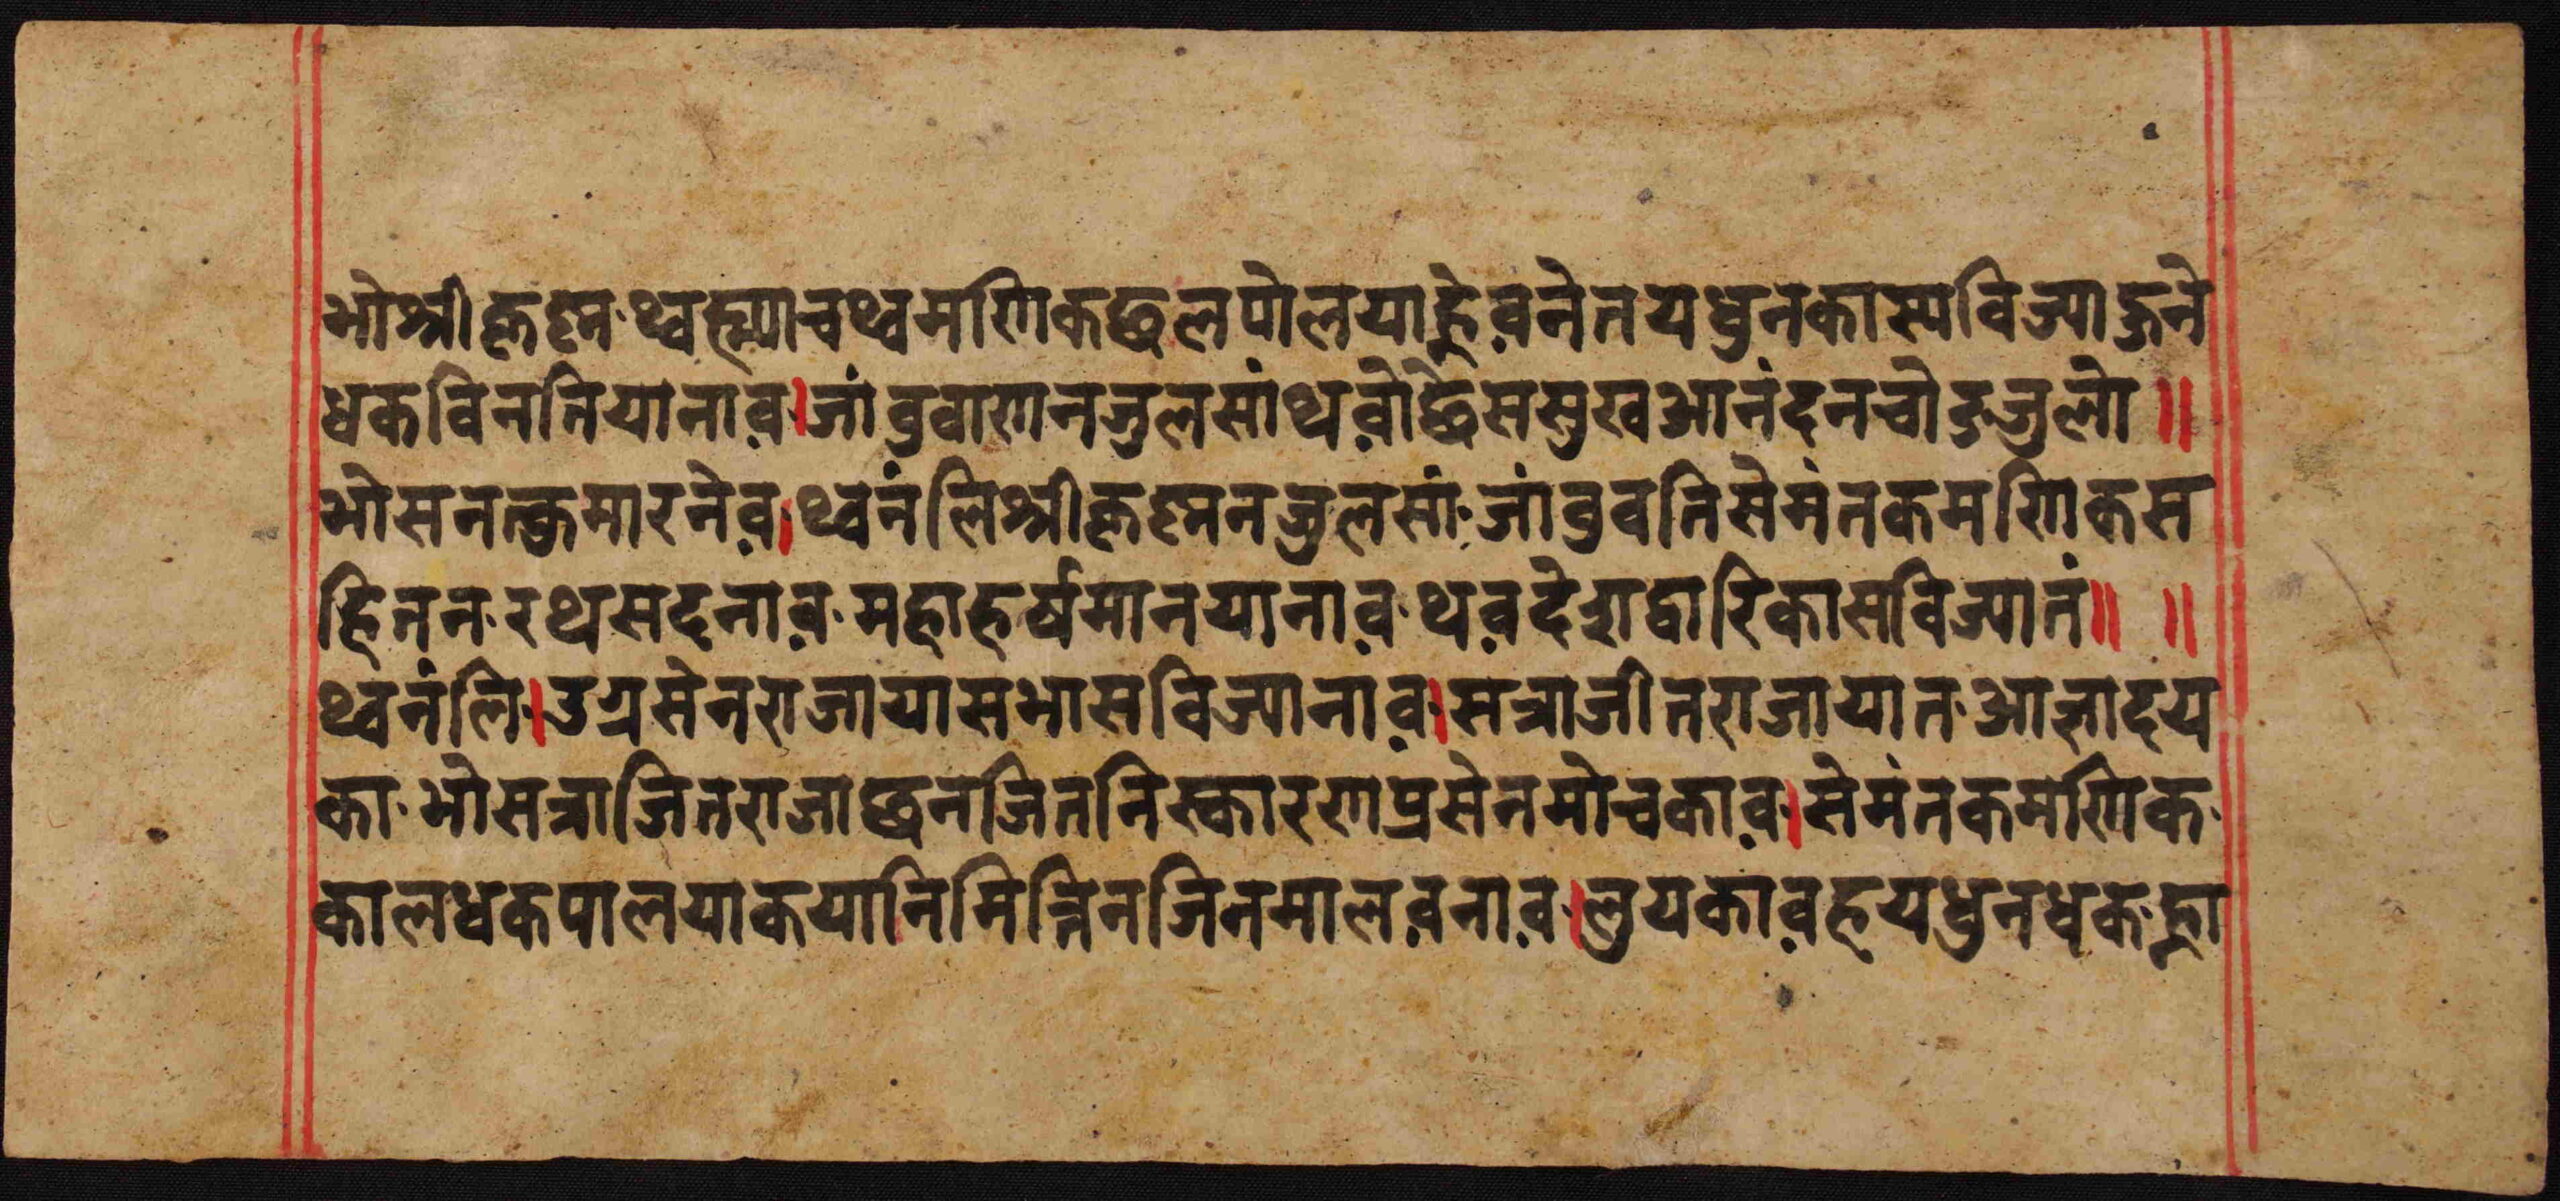 भोश्रीकृष्न थ्वह्म्याचथ्वमणिकछलपोलयाह्नेव़नेतयधुनकास्यविज्याहुने
धकविनतियानाव़।जांवुवाणनजुलसांथव़ोछेससुखआनंदनचोङजुलो॥
भोसनत्कुमारनेव़।थ्वनंलिश्रीकृष्ननजुलसां जांवुवतिसेमंतकमणिकस
हितन रथसदनाव़ महाहर्षमानयानाव़ थव़देशद्वारिकासविज्यातं॥ ॥
थ्वनंलि।उग्रसेनराजायासभासविज्यानाव़।सत्राजीतराजायात आज्ञादय
का भोसत्राजितराजाछनजितनिस्कारणप्रसेनमोचकाव़।सेमंतकमणिक
कालधकपालयाकयानिमित्तिनजिनमालव़नाव़।लुयकाव़हयधुनधक ह्ना